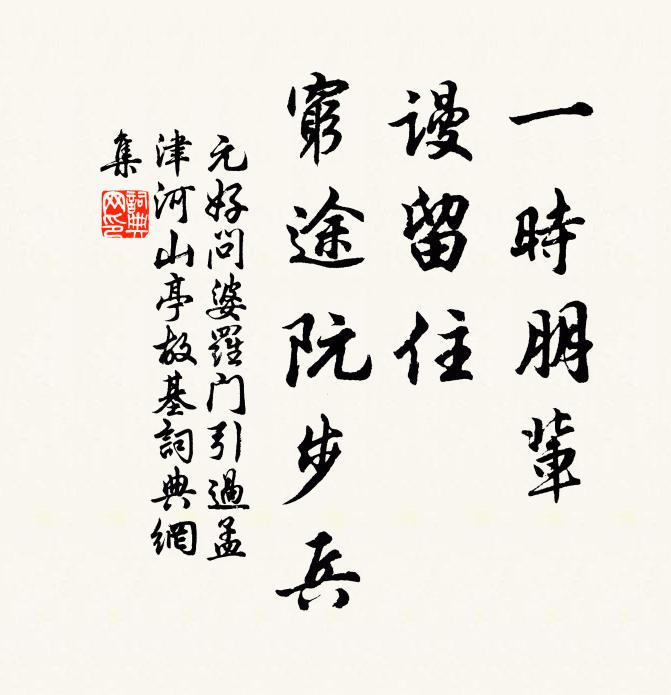 一時朋輩
謾留住
窮途阮步兵
元好問婆羅門引過孟
津河山亭故基詞典網
集
詞典
网印